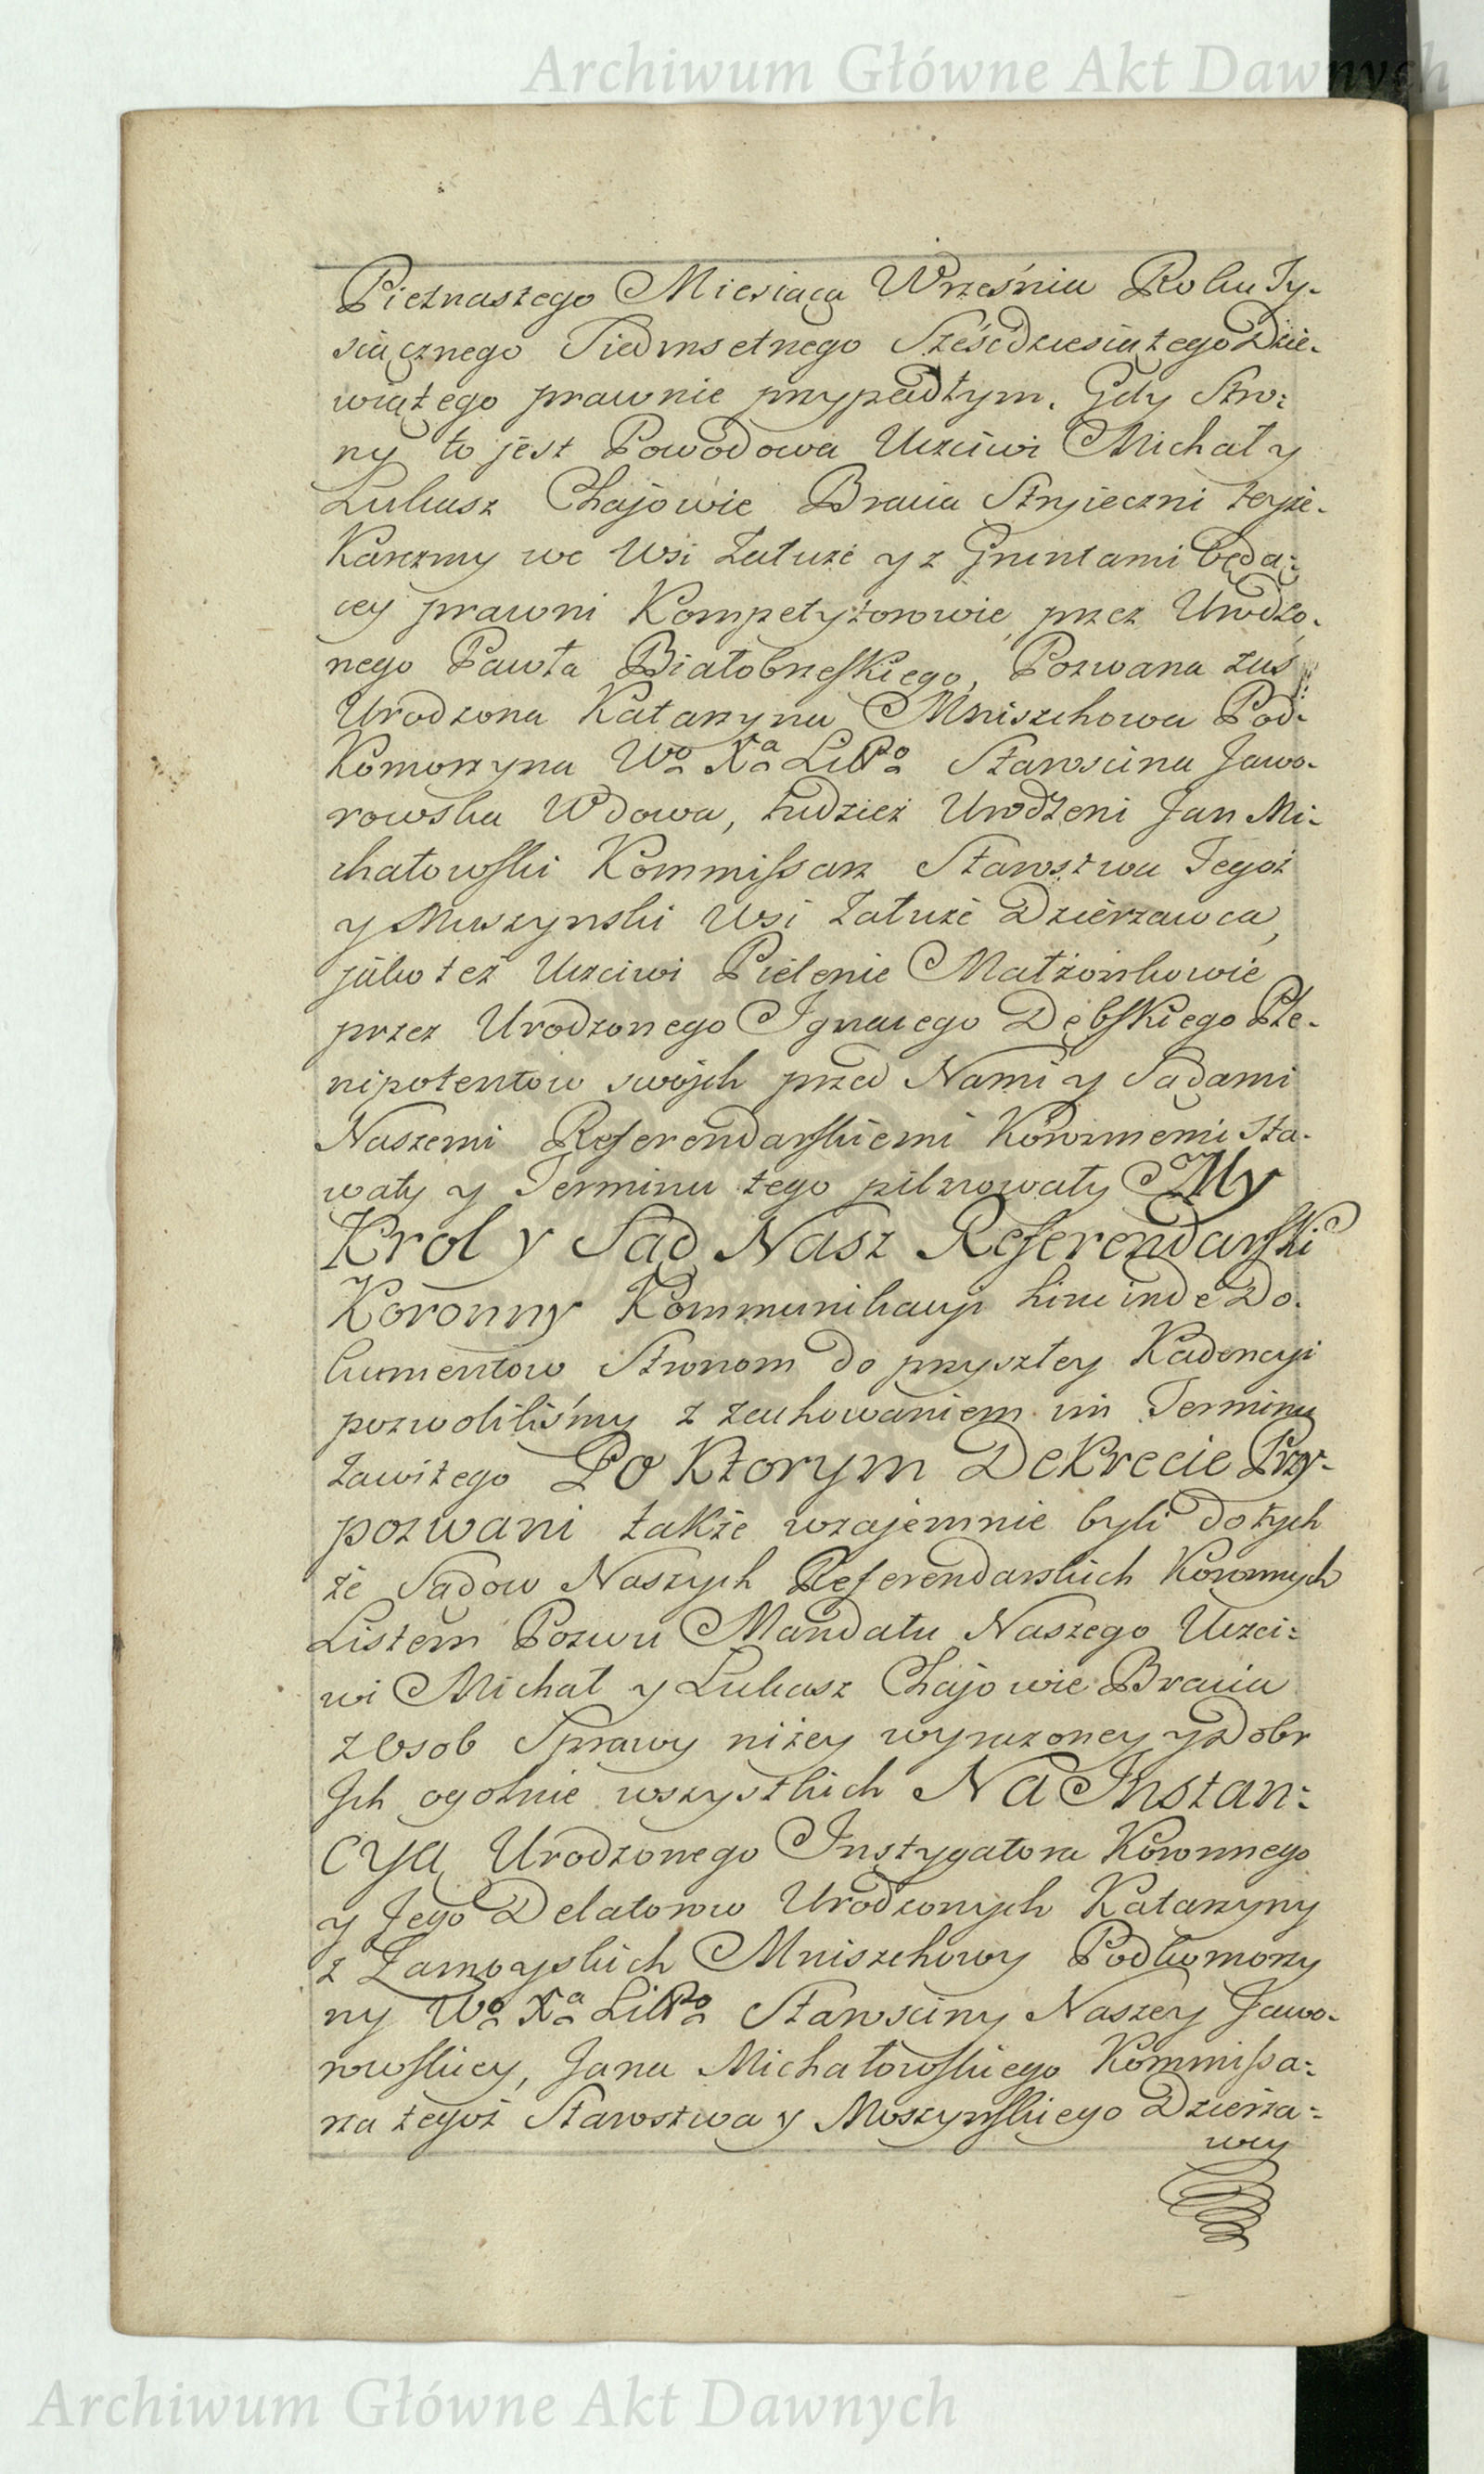 Archiwum Główne Akt Dawnych
Pietnastego Miesiąca Wrześniu Roku Ty-
siącznego Siedmsetnego Sześćdziesiątego Dzie-
wiątego prawnie przypadłym. Gdy Stro:
ny to jest Powodowa Uczciwi Michał y
Lukasz Chajowie Bracia Stryieczni teyże-
Karczmy we Wsi Załuże y z Gruntami będą:
cey prawni Kompetytorowie przez Urodzo-
nego Pawła Białobrzeskiego, Pozwana zas
Urodzona Katarzyna Mniszchowa Pod-
Komorzyna Wo Xa Litto Starościna Jawo-
rowska Wdowa, tudzież Urodzeni Jan Mi-
chałowski Kommissarz Starostwa Tegoż
y Moszynski Wsi Załuże Dzierzawca,
jako też Uczciwi Pielenie Małżonkowie
przez Urodzonego Ignacego Dębskiego Ple-
nipotentow swojch przed Nami y Sądami
Naszemi Referendarskiemi Koronnemi sta-
wały y Terminu tego pilnowały My
Krol y Sąd Nasz Referendarski
Koronny Kommunikacyi hinc inde Do-
kumentow Stronom do przyszłey Kadencyi
pozwoliliśmy z zachowaniem im Terminu
zawitego Po Ktorym Dekrecie Przy-
pozwani także wzajemnie byli do tych
że Sądow Naszych Referendarskich Koronnych
Listem Pozwu Mandatu Naszego Uczci:
wi Michał y Lukasz Chajowie Bracia
z Osob Sprawy niżey wyrazoney y Dobr
Jch ogolnie wszystkich Na Instan:
cyą Urodzonego Instygatora Koronnego
y Jego Delatorow Urodzonych Katarzyny
z Zamoyskich Mniszchowy Podkomorzy
ny Wo Xa Litto Starosciny Naszey Jawo-
rowskiey, Jana Michałowskiego Kommissa:
rza tegoż Starostwa y Moszynskiego Dzierża:
wcy
Archiwum Główne Akt Dawnych